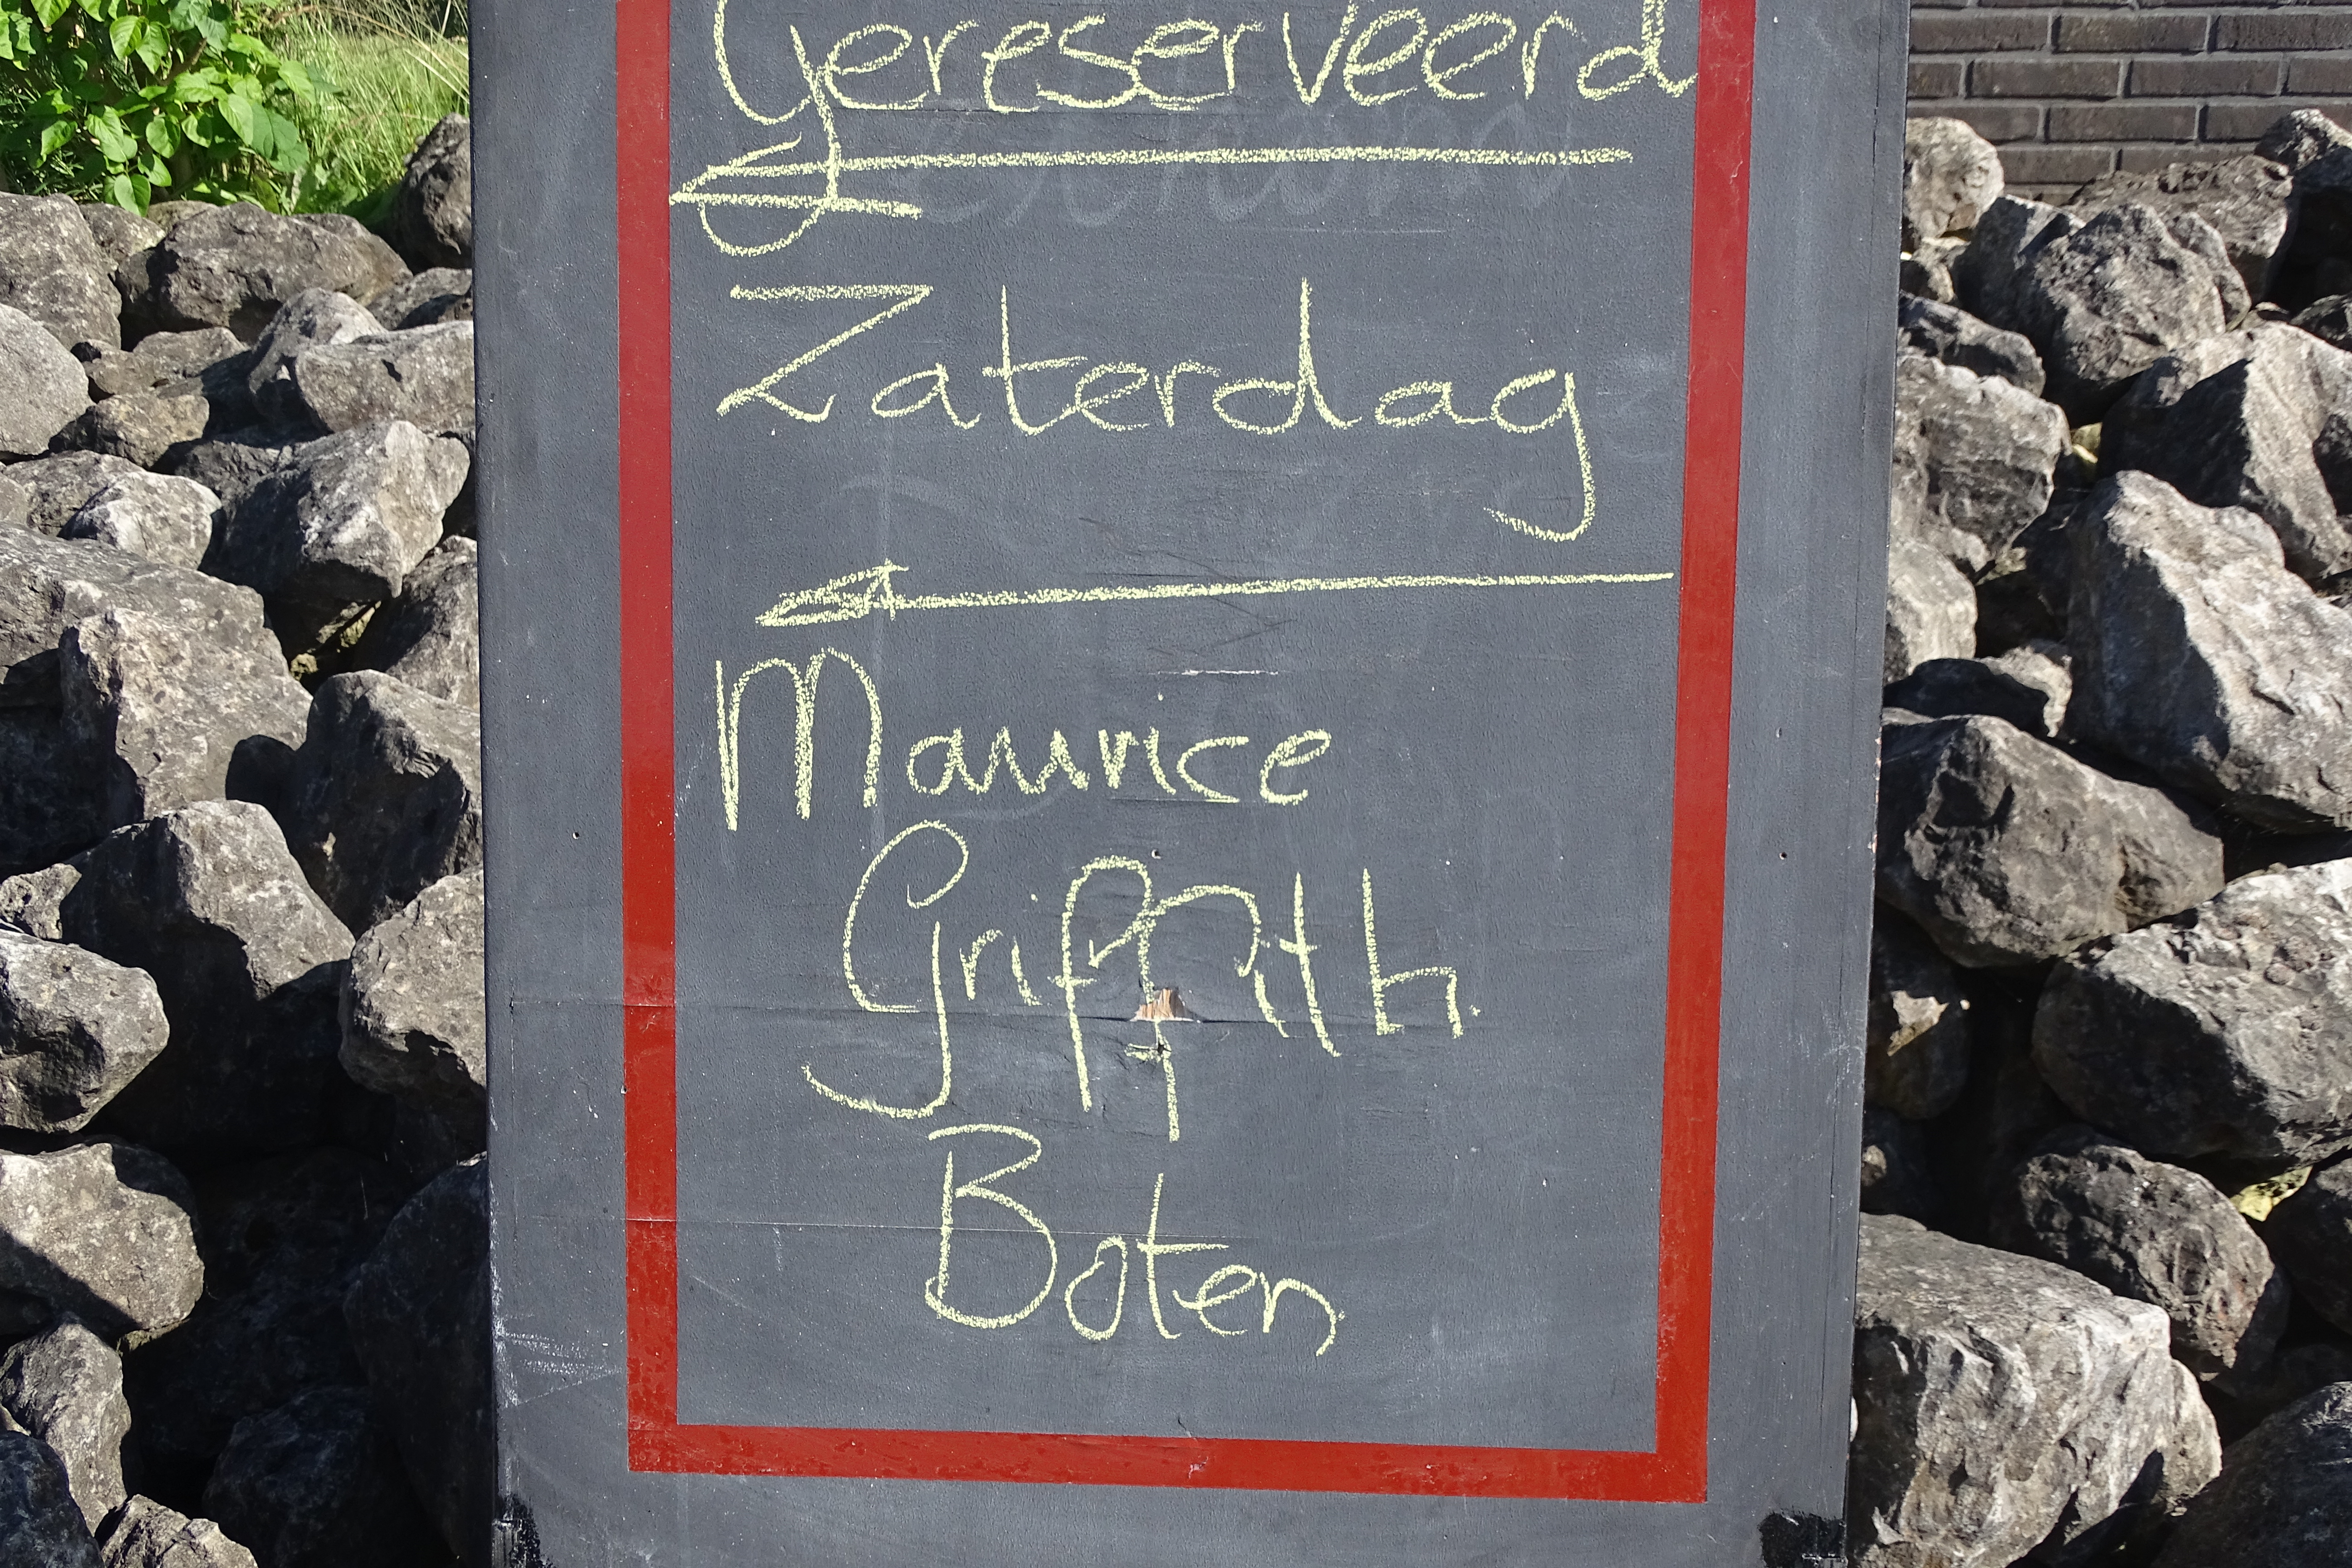 Gereserveerd
Zaterdag
Maurice
Griffith
Boten